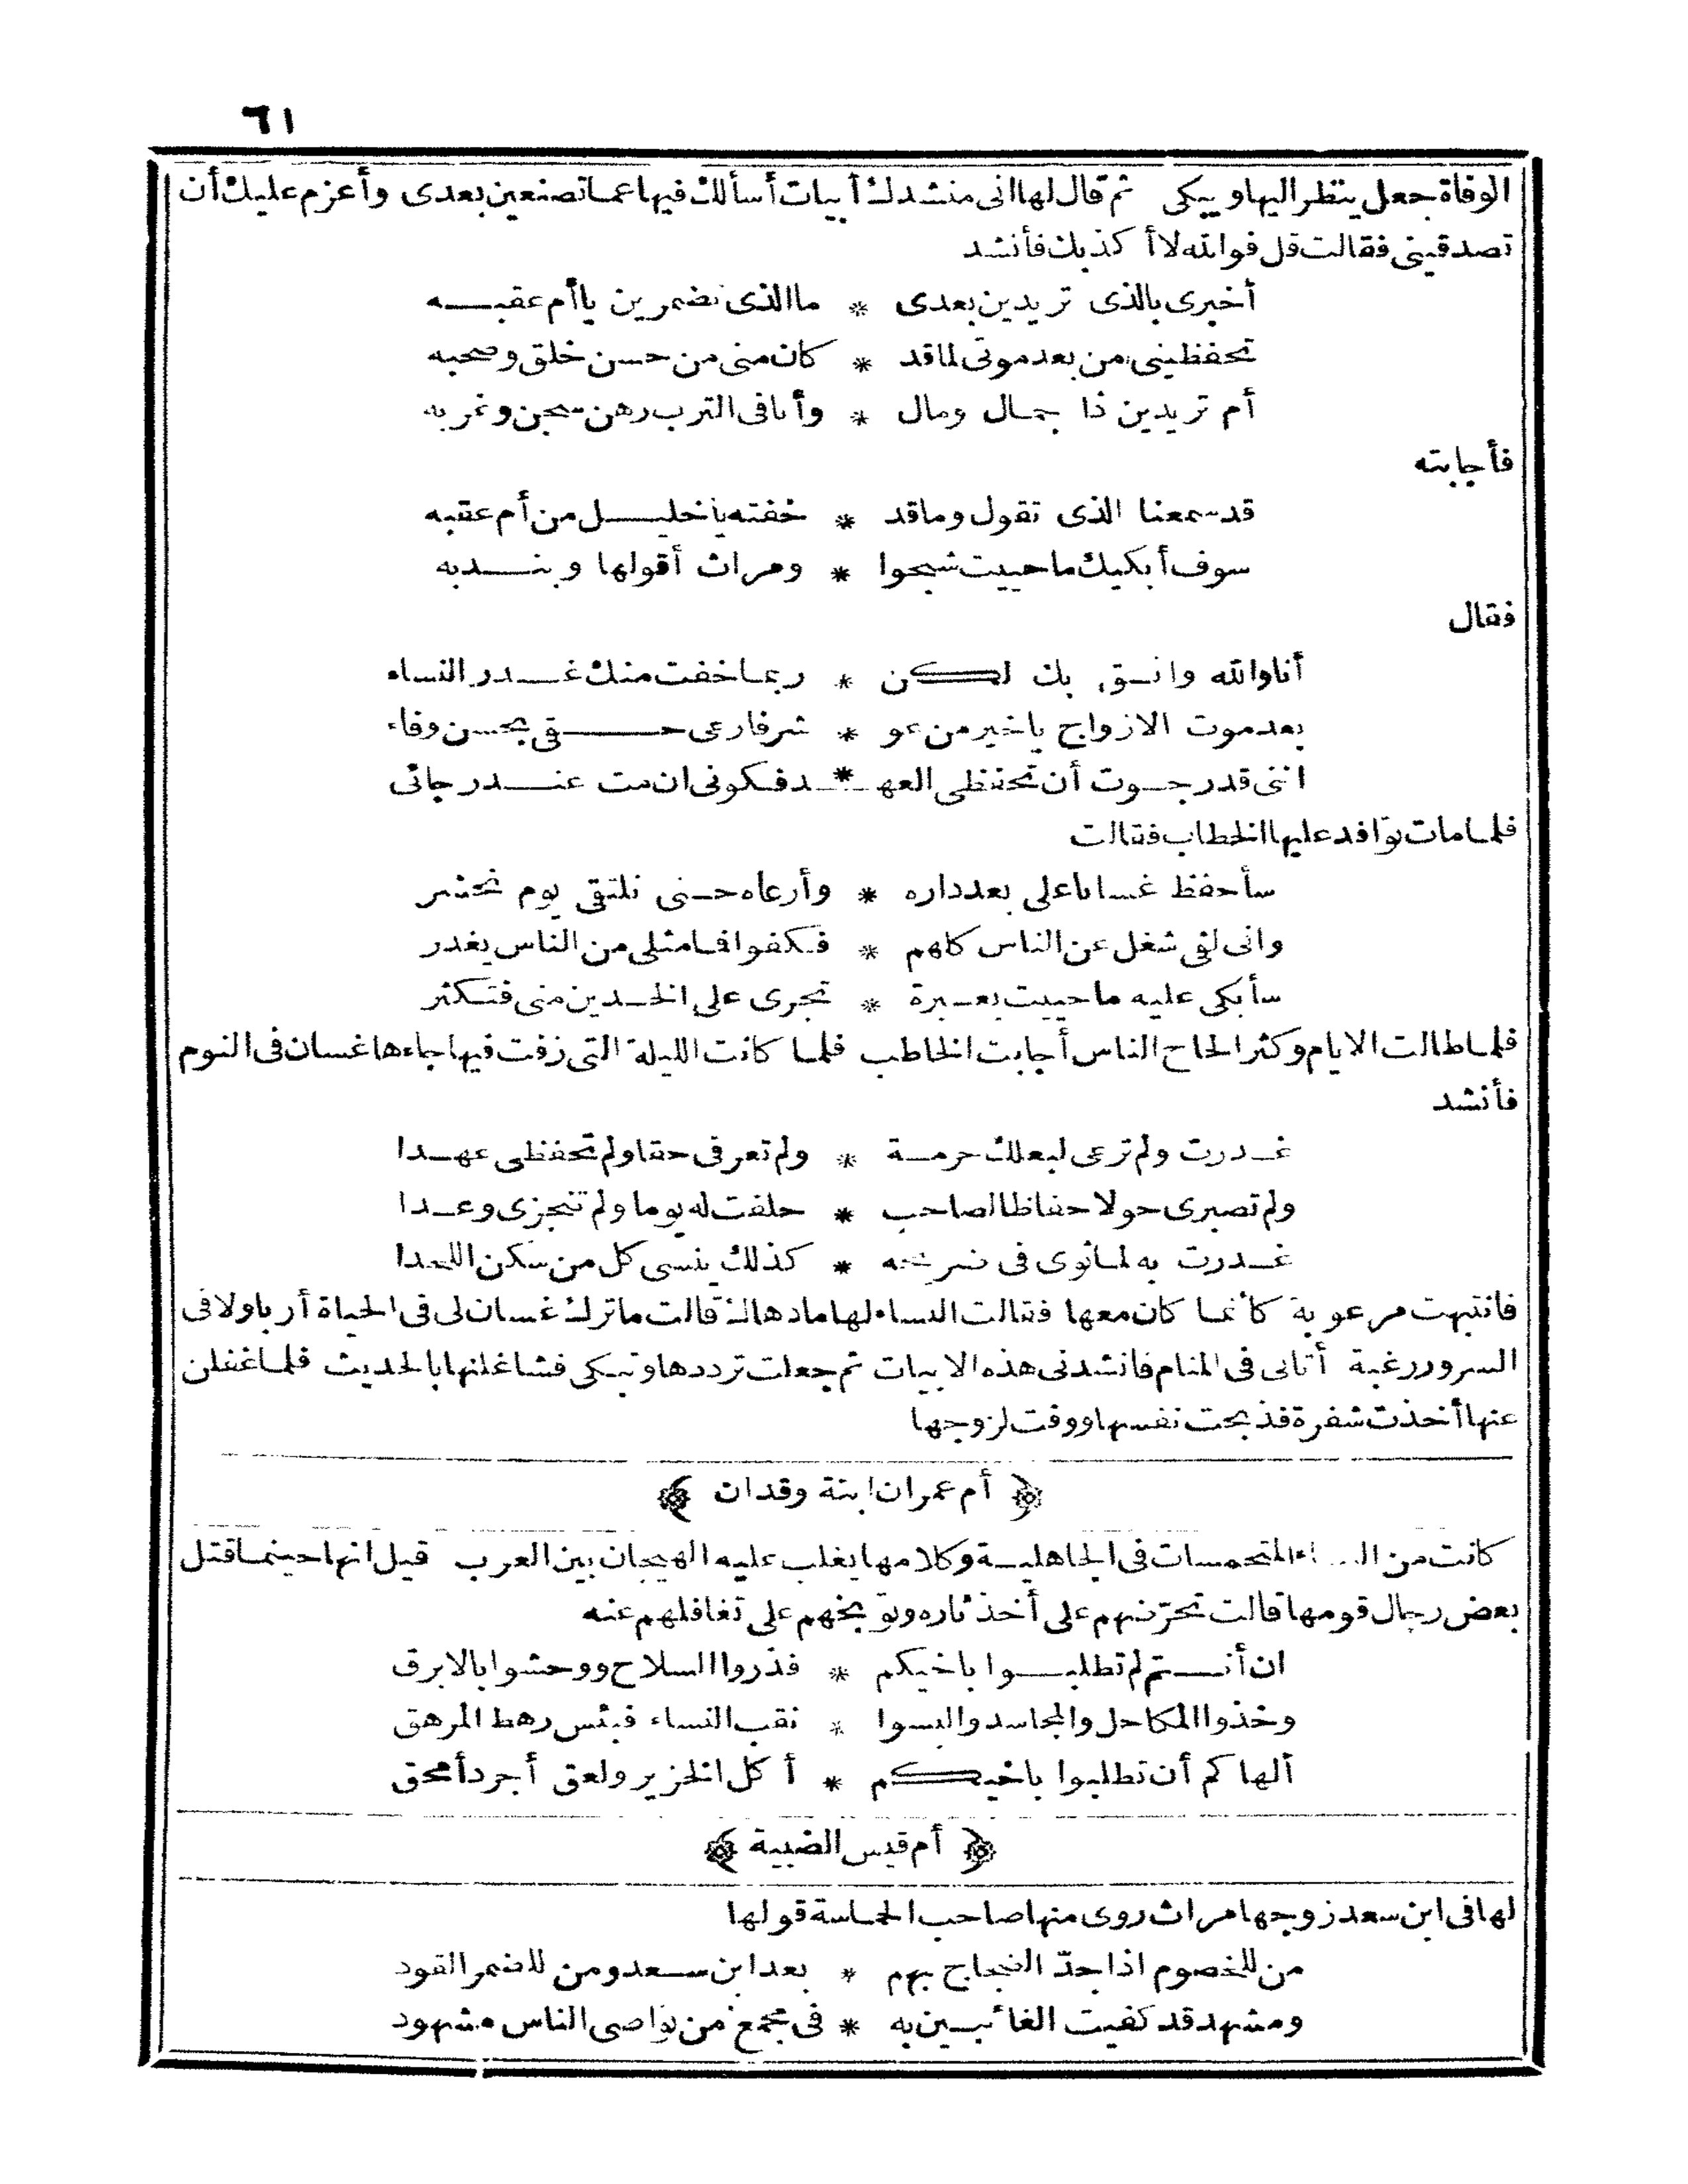 ٦١
الوفاة جعل ينظر اليها ويبكى ثم قال لها انى منشدك أبيات أسألك فيها عما تصنعين بعدى وأعزم عليك أن
تصدقينى فقالت قل فوالله لا أكذبك فأنشد
أخبرى بالذى تريدين بعدى * ما الذى تضمرين يا أم عقبه
تحفظينى من بعد موتى لما قد * كان منى من حسن خلق وصحبه
أم تريدين ذا جمال ومال * وأنا فى الترب رهن سجن وغربه
فأجابته
قد سمعنا الذى تقول وما قد * خفته يا خليل من أم عقبه
سوف أبكيك ما حييت شجوا * ومراث أقولها وبندبه
فقال
أنا والله واثق بك لكن * ربما خفت منك غدر النساء
بعد موت الازواج يا خير من عو * شر فارعى حقى بحسن وفاء
اننى قد رجوت أن تحفظى العهـ * ـد فكونى ان مت عند رجائى
فلما مات توافد عليها الخطاب فقالت
سأحفظ غسانا على بعد داره * وأرعاه حتى نلتقى يوم نحشر
وانى لفى شغل عن الناس كلهم * فكفوا فما مثلى من الناس يغدر
سأبكى عليه ما حييت بعبرة * تجرى على الخدين منى فتكثر
فلما طالت الايام وكثر الحاح الناس أجابت الخاطب فلما كانت الليلة التى زفت فيها جاءها غسان فى النوم
فأنشد
غدرت ولم ترعى لبعلك حرمة * ولم تعرفى حقا ولم تحفظى عهدا
ولم تصبرى حولا حفاظا لصاحب * حلفت له يوما ولم تنجزى وعدا
غدرت به لما ثوى فى ضريحه * كذلك ينسى كل من سكن اللحدا
فانتبهت مرعوبة كأنما كان معها فقالت النساء لها ما دهاك قالت ما ترك غسان لى فى الحياة أربا ولا فى
السرور رغبة أتانى فى المنام فانشدنى هذه الابيات ثم جعلت ترددها وتبكى فشاغلنها بالحديث فلما غفلن
عنها أخذت شفرة فذبحت نفسها ووفت لزوجها
﴿ أم عمران ابنة وقدان ﴾
كانت من المتحمسات فى الجاهلية وكلامها يغلب عليه الهيجان بين العرب قيل انها حينما قتل
بعض رجال قومها قالت تحرّضهم على أخذ ثاره وتوبخهم على تغافلهم عنه
ان أنتم لم تطلبوا باخيكم * فذروا السلاح ووحشوا بالابرق
وخذوا المكاحل والمجاسد والبسوا * نقب النساء فبئس رهط المرهق
ألهاكم أن تطلبوا باخيكم * أكل الخزير ولعق أجرد أمحق
﴿ أم قيس الضبية ﴾
لها فى ابن سعد زوجها مراث روى منها صاحب الحماسة قولها
من للخصوم اذا جدّ الضجاج بهم * بعد ابن سعد ومن للضمر القود
ومشهد قد كفيت الغائبين به * فى مجمع من نواصى الناس مشهود